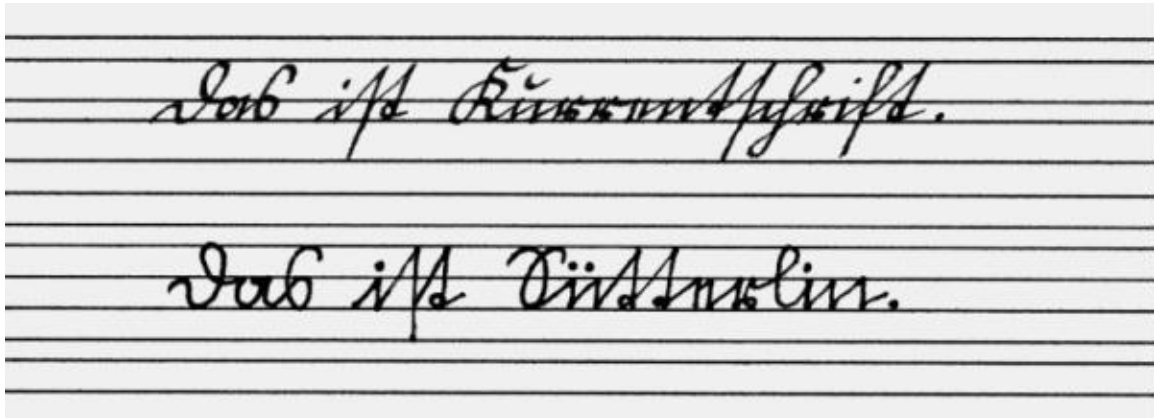 Das ist Kurrentschrift.
Das ist Sütterlin.